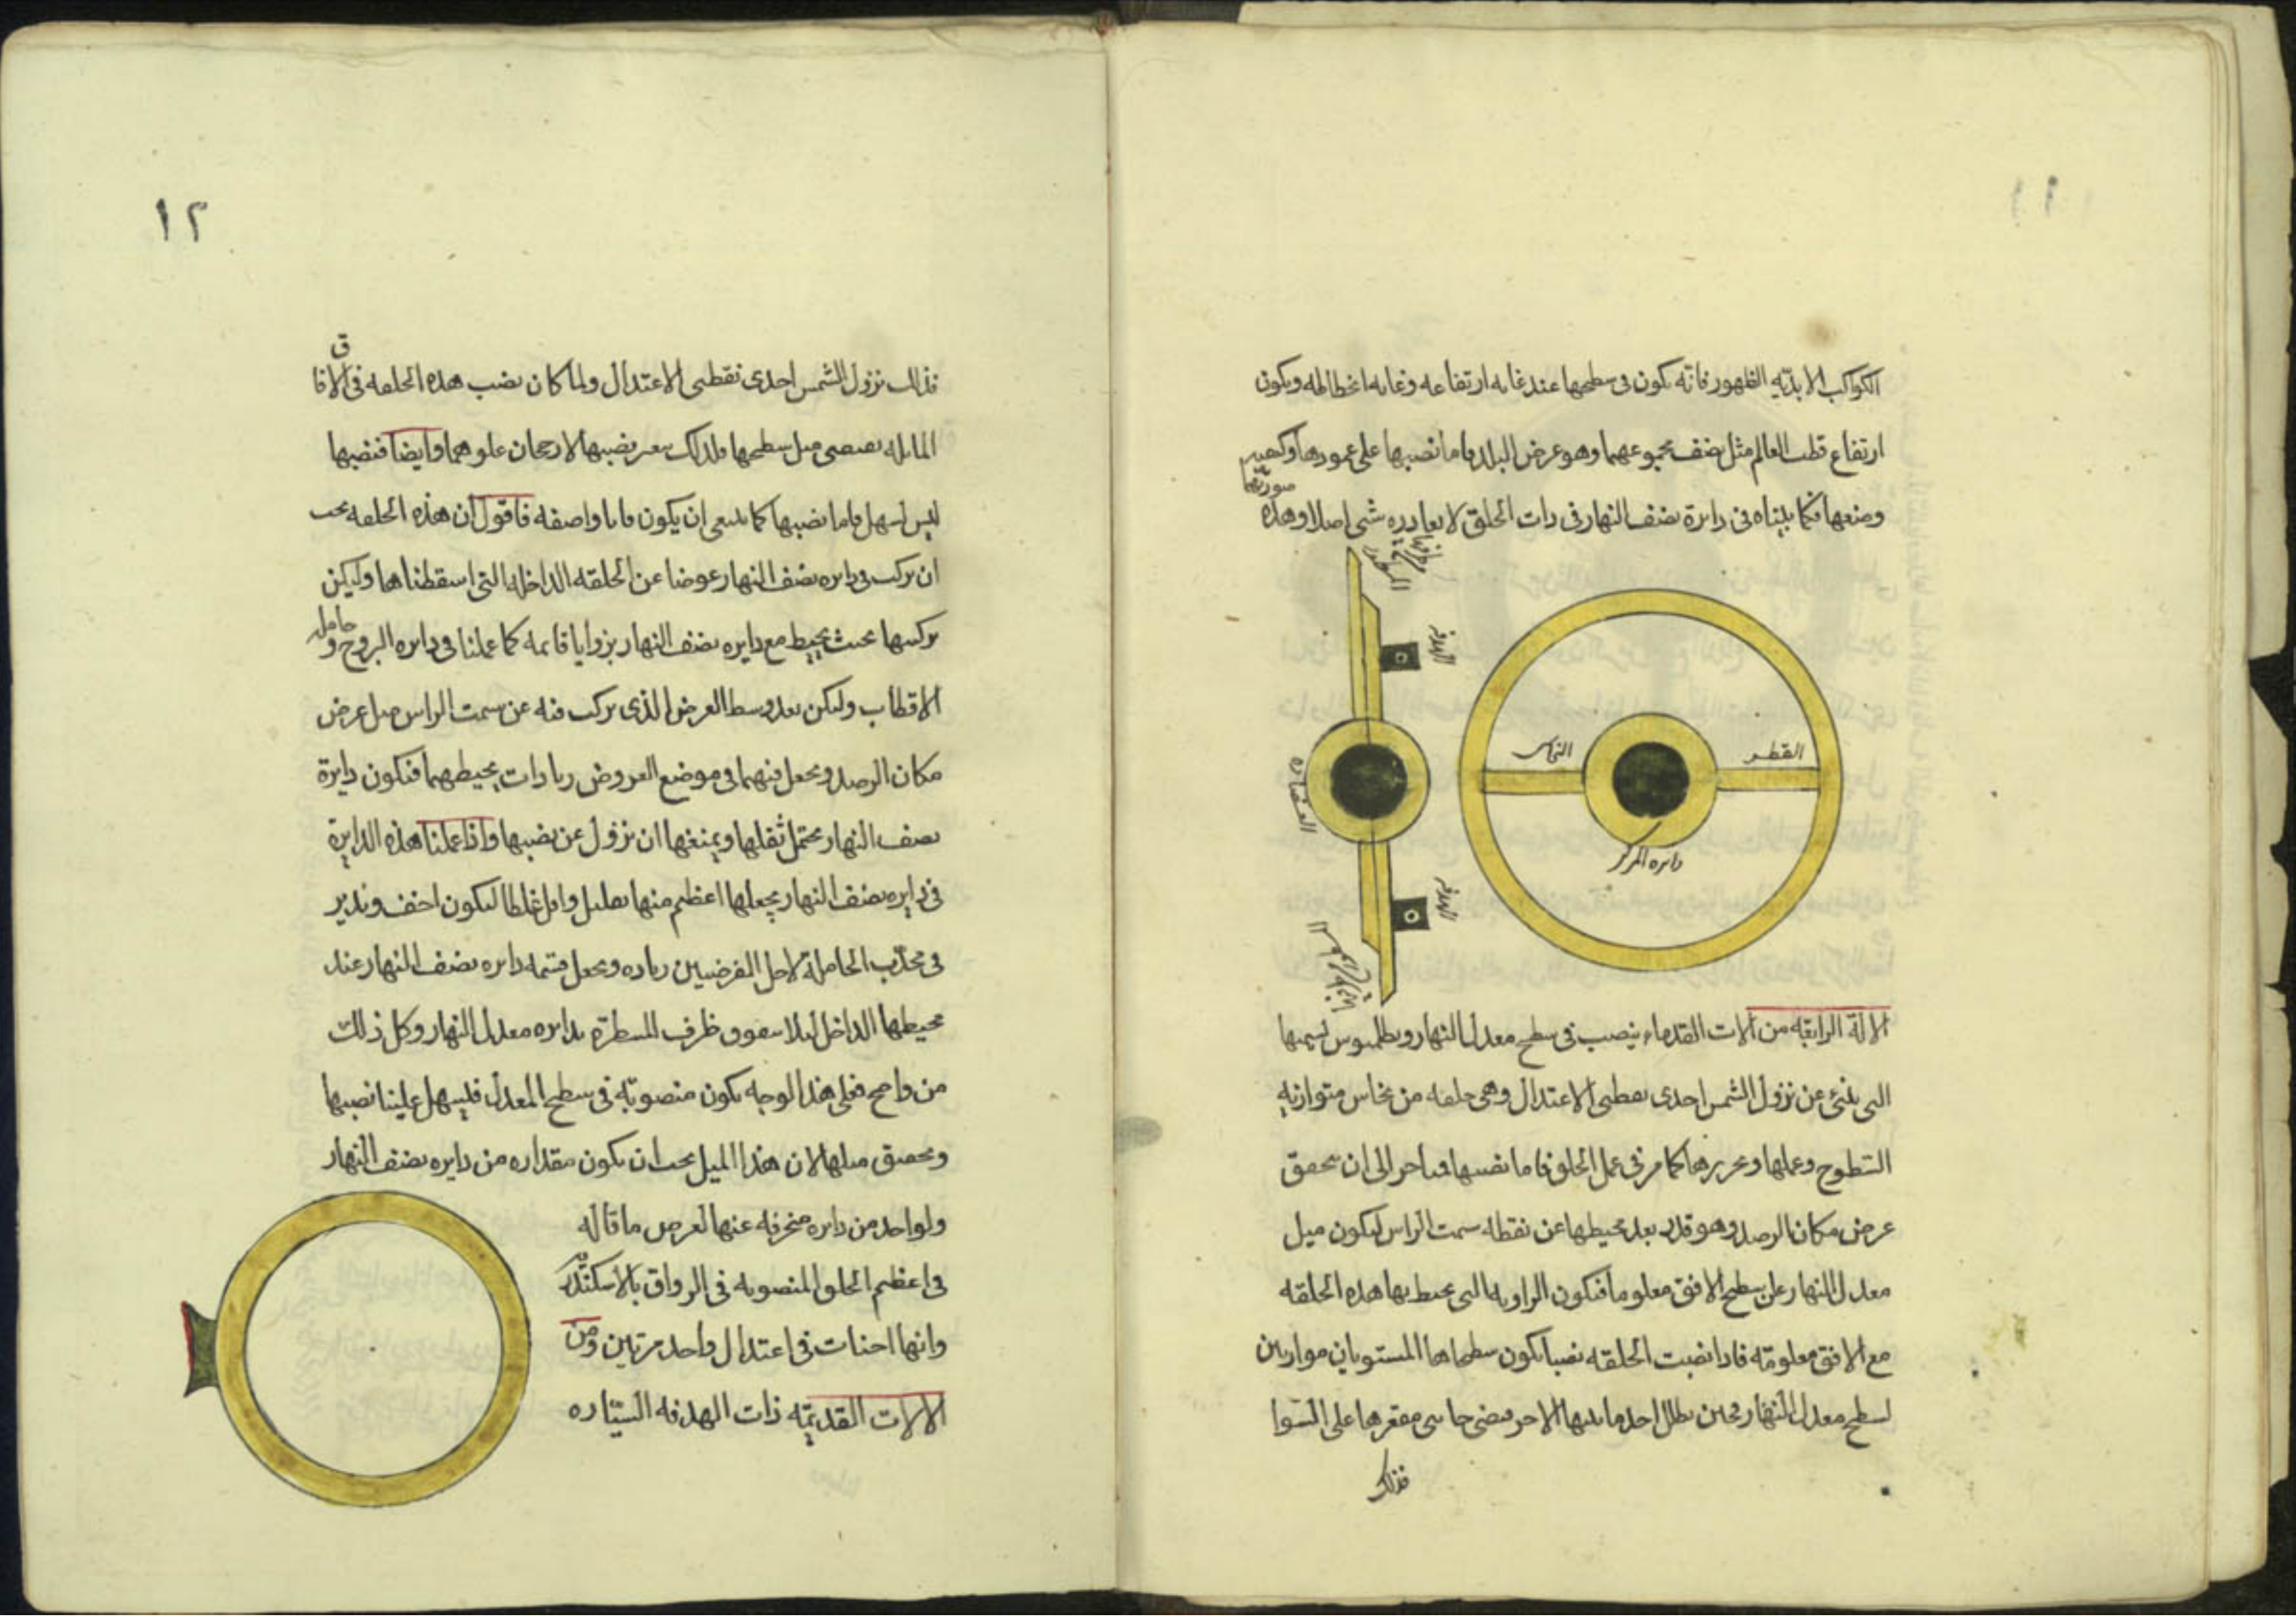 الكواكب الابديّه الظهور فانّه يكون فى سطحها عند غايه ارتفاعه وغايه انحطاطه ويكون
ارتفاع قطب العالم مثل نصف مجموعهما وهو عرض البلد واما نصبها على عمودها وكيفيه
وضعها فكما بيّناه فى دايرة نصف النهار فى ذات الحلق لا يغادره شى اصلا وهذه
صورتها
الهدفه
القطر
النحاس
دايره المركز
العضاده
الهدفه
الالة الرابعه من الات القدماء ينصب فى سطح معدل النهار وبطلميوس يسميها
التى تنبئ عن نزول الشمس احدى نقطتى الاعتدال وهى حلقه من نحاس متوازيه
السّطوح وعملها وتحريرها كما مر فى عمل الحلق فاما نصبها فيتاخر الى ان يتحقق
عرض مكان الرصد وهو قدر بعد محيطها عن نقطه سمت الراس ليكون ميل
معدل النهار على سطح الافق معلوما فتكون الزاويه التى يحيط بها هذه الحلقه
مع الافق معلومّه فاذا نصبت الحلقه نصبا يكون سطحاها المستويان موازيين
لسطح معدل النهار فحين يظلل احد جانبيها الاخر ويضى جانبى مقعرها على السّوا
فذلك
١٢
فذلك نزول الشمس احدى نقطتى الاعتدال ولما كان نصب هذه الحلقه فى الافاق
المايله يقتضى ميل سطحها ولذلك يعسر نصبها لا رجحان علوهما وايضا فنصبها
ليس بسهل فاما نصبها كما ينبغى ان يكون فانا واصفه فاقول ان هذه الحلقه يجب
ان تركب فى دايره نصف النهار عوضا عن الحلقه الداخله التى اسقطناها وليكن
تركيبها بحيث يحيط مع دايره نصف النهار بزوايا قايمه كما عملنا فى دايره البروج وحامل
الاقطاب وليكن بعد وسط العرض الذى يركب فيه عن سمت الراس ميل عرض
مكان الرصد ويجعل فيهما فى موضع العروض زيادات يحيط بهما فتكون دايرة
نصف النهار يحتمل ثقلها ويمنعها ان تزول عن نصبها واذا عملنا هذه الدايرة
فى دايره نصف النهار يجعلها اعظم منها بقليل واقل غلظا ليكون اخف ونديز
فى محدّب الحاملة لاجل الفرضيين زياده ويجعل قسمه دايره نصف النهار عند
محيطها الداخل ليلا يعوق ظرف المسطرة بدايره معدل النهار وكل ذلك
من واضح فعلى هذا الوجه يكون منصوبّه فى سطح المعدل فليسهل علينا نصبها
وتحقيق ميلها لان هذا الميل يجب ان يكون مقداره من دايره نصف النهار
ولواحد من دايره منحرفه عنها لعرض ما قاله
فى اعظم الحلق المنصوبه فى الرواق بالاسكندريه
وانها احنات فى اعتدال واحد مرتين ومن
الالات القديمّه ذات الهدفه السيّاره